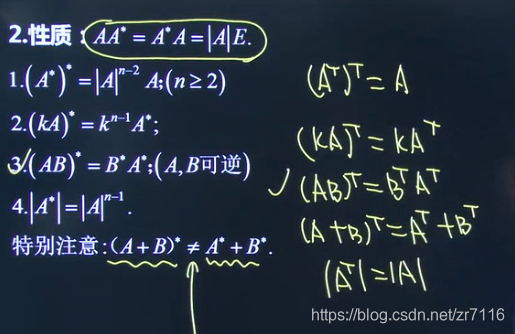 2.性质：AA* = A*A = |A|E.
1.(A*)* = |A|ⁿ⁻² A;(n ≥ 2)
2.(kA)* = kⁿ⁻¹A*;
3.(AB)* = B*A*;(A,B可逆)
4.|A*| = |A|ⁿ⁻¹.
特别注意:(A + B)* ≠ A* + B*.
(Aᵀ)ᵀ = A
(kA)ᵀ = kAᵀ
(AB)ᵀ = BᵀAᵀ
(A+B)ᵀ = Aᵀ+Bᵀ
|Aᵀ| = |A|
https://blog.csdn.net/zr7116